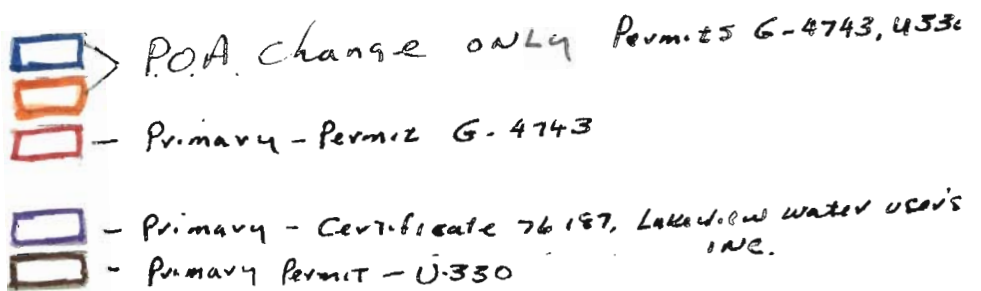 P.O.A. Change ONLY Permits G-4743, U330
- Primary - Permit G-4743
- Primary - Certificate 76187, Lakeview water user's
INC.
- Primary Permit - U-330